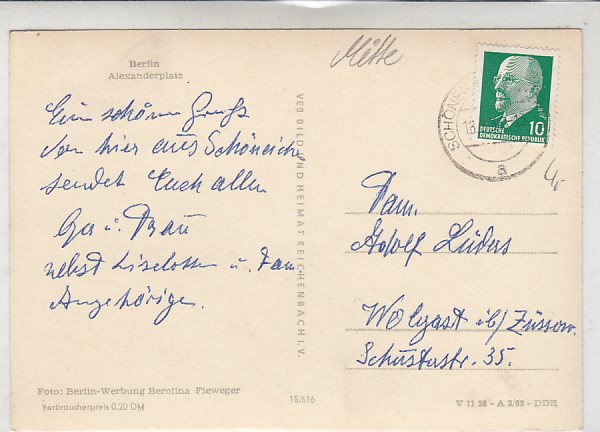 Mitte
Berlin
Alexanderplatz
Ein schöner Gruß
von hier aus Schöneiche
sendet Euch allen
u. Frau
nebst Liselotte u. Fam.
Angehörigen.
VEB BILD UND HEIMAT REICHENBACH I. V.
SCHÖNEI
18.
a
10
DEUTSCHE
DEMOKRATISCHE REPUBLIK
4,-
Fam.
Adolf Lüdas
Wolgast üb/ Züssow.
Schusterstr. 35.
Foto: Berlin-Werbung Berolina Fieweger
Verbraucherpreis 0,20 DM
15/616
V 11 28 - A 2/63 - DDR